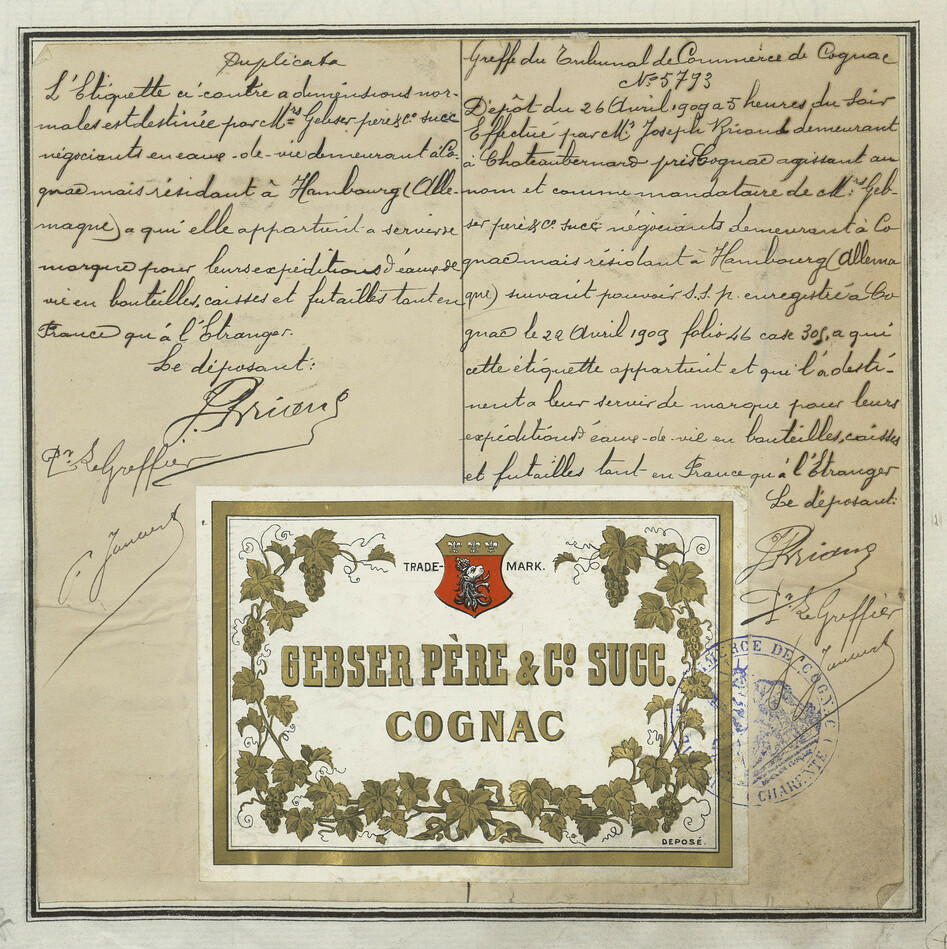 Duplicata
L'Etiquette ci contre a dimensions nor-
males est destinée par Mrs Gebser pere & Co succ
négociants en eaux-de-vie demeurant à Co-
gnac mais résidant à Hambourg (Alle-
magne) a qui elle appartient a servir de
marque pour leurs expéditions d'eaux de
vie en bouteilles, caisses et futailles tant en
France qu'à l'Etranger.
Le déposant:
J. Briand
Pr Le Greffier
Greffe du Tribunal de Commerce de Cognac
No 5793
Dépôt du 26 Avril 1909 a 5 heures du Soir
Effectué par Mr Joseph Briand demeurant
à Chateaubernard près Cognac agissant au
nom et comme mandataire de Mrs Geb-
ser pere & Co succ négociants demeurant à Co
gnac mais résidant à Hambourg (Allema
gne) suivant pouvoir S.S.p. enregistré à Co
gnac le 22 Avril 1909 folio 46 case 305, a qui
cette étiquette appartient et qui l'a desti-
nent a leur servir de marque pour leurs
expéditions d'eaux-de-vie en bouteilles, caisses
et futailles tant en France qu'à l'Etranger
Le déposant:
J. Briand
Pr Le Greffier
TRADE-MARK.
GEBSER PÈRE & Co. SUCC.
COGNAC
DEPOSÉ.
COMMERCE DE COGNAC
CHARENTE